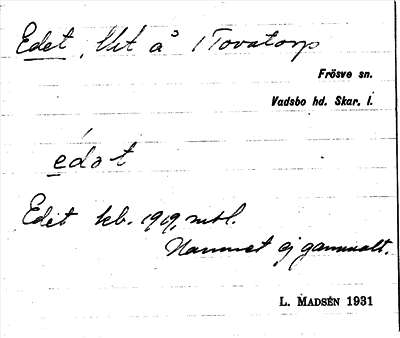 Edet, lht å 1 Tovatorp
Frösve sn.
Vadsbo hd. Skar. l.
edət
Edet kb. 1919, mtl.
Namnet ej gammalt.
L. MADSÉN 1931